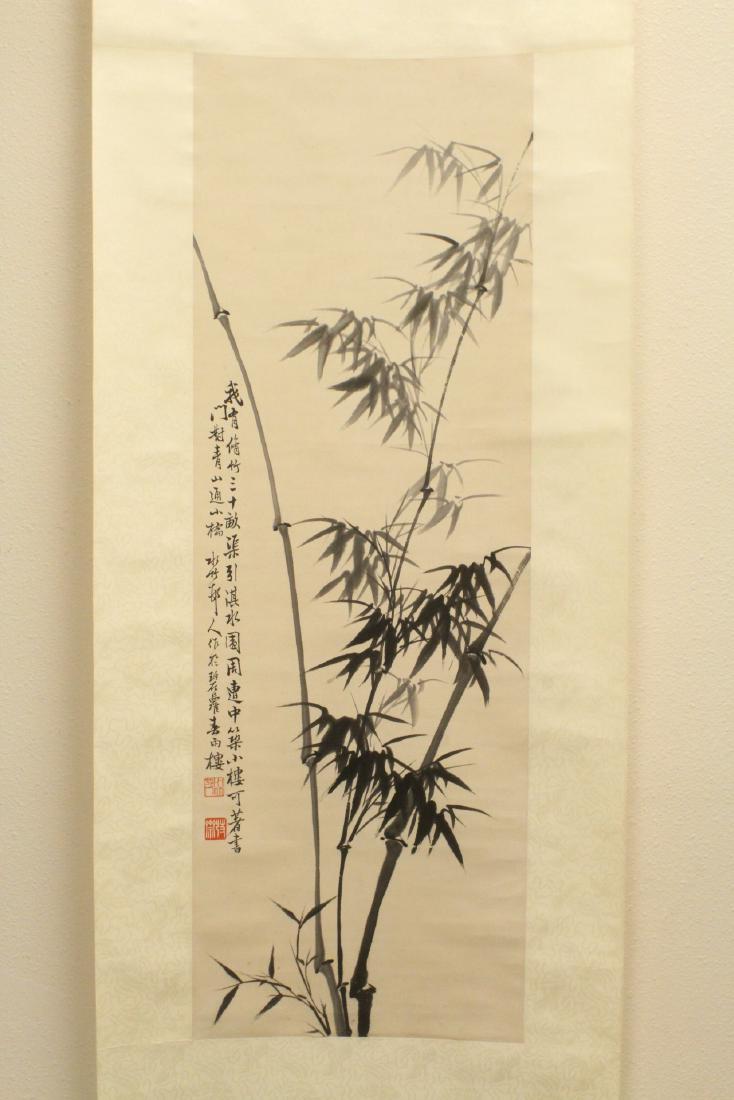 我有脩竹三十畝渠引淇水園周遭中築小樓可著書
門對青山通小橋 水竹邨人作於碧蘿春雨樓